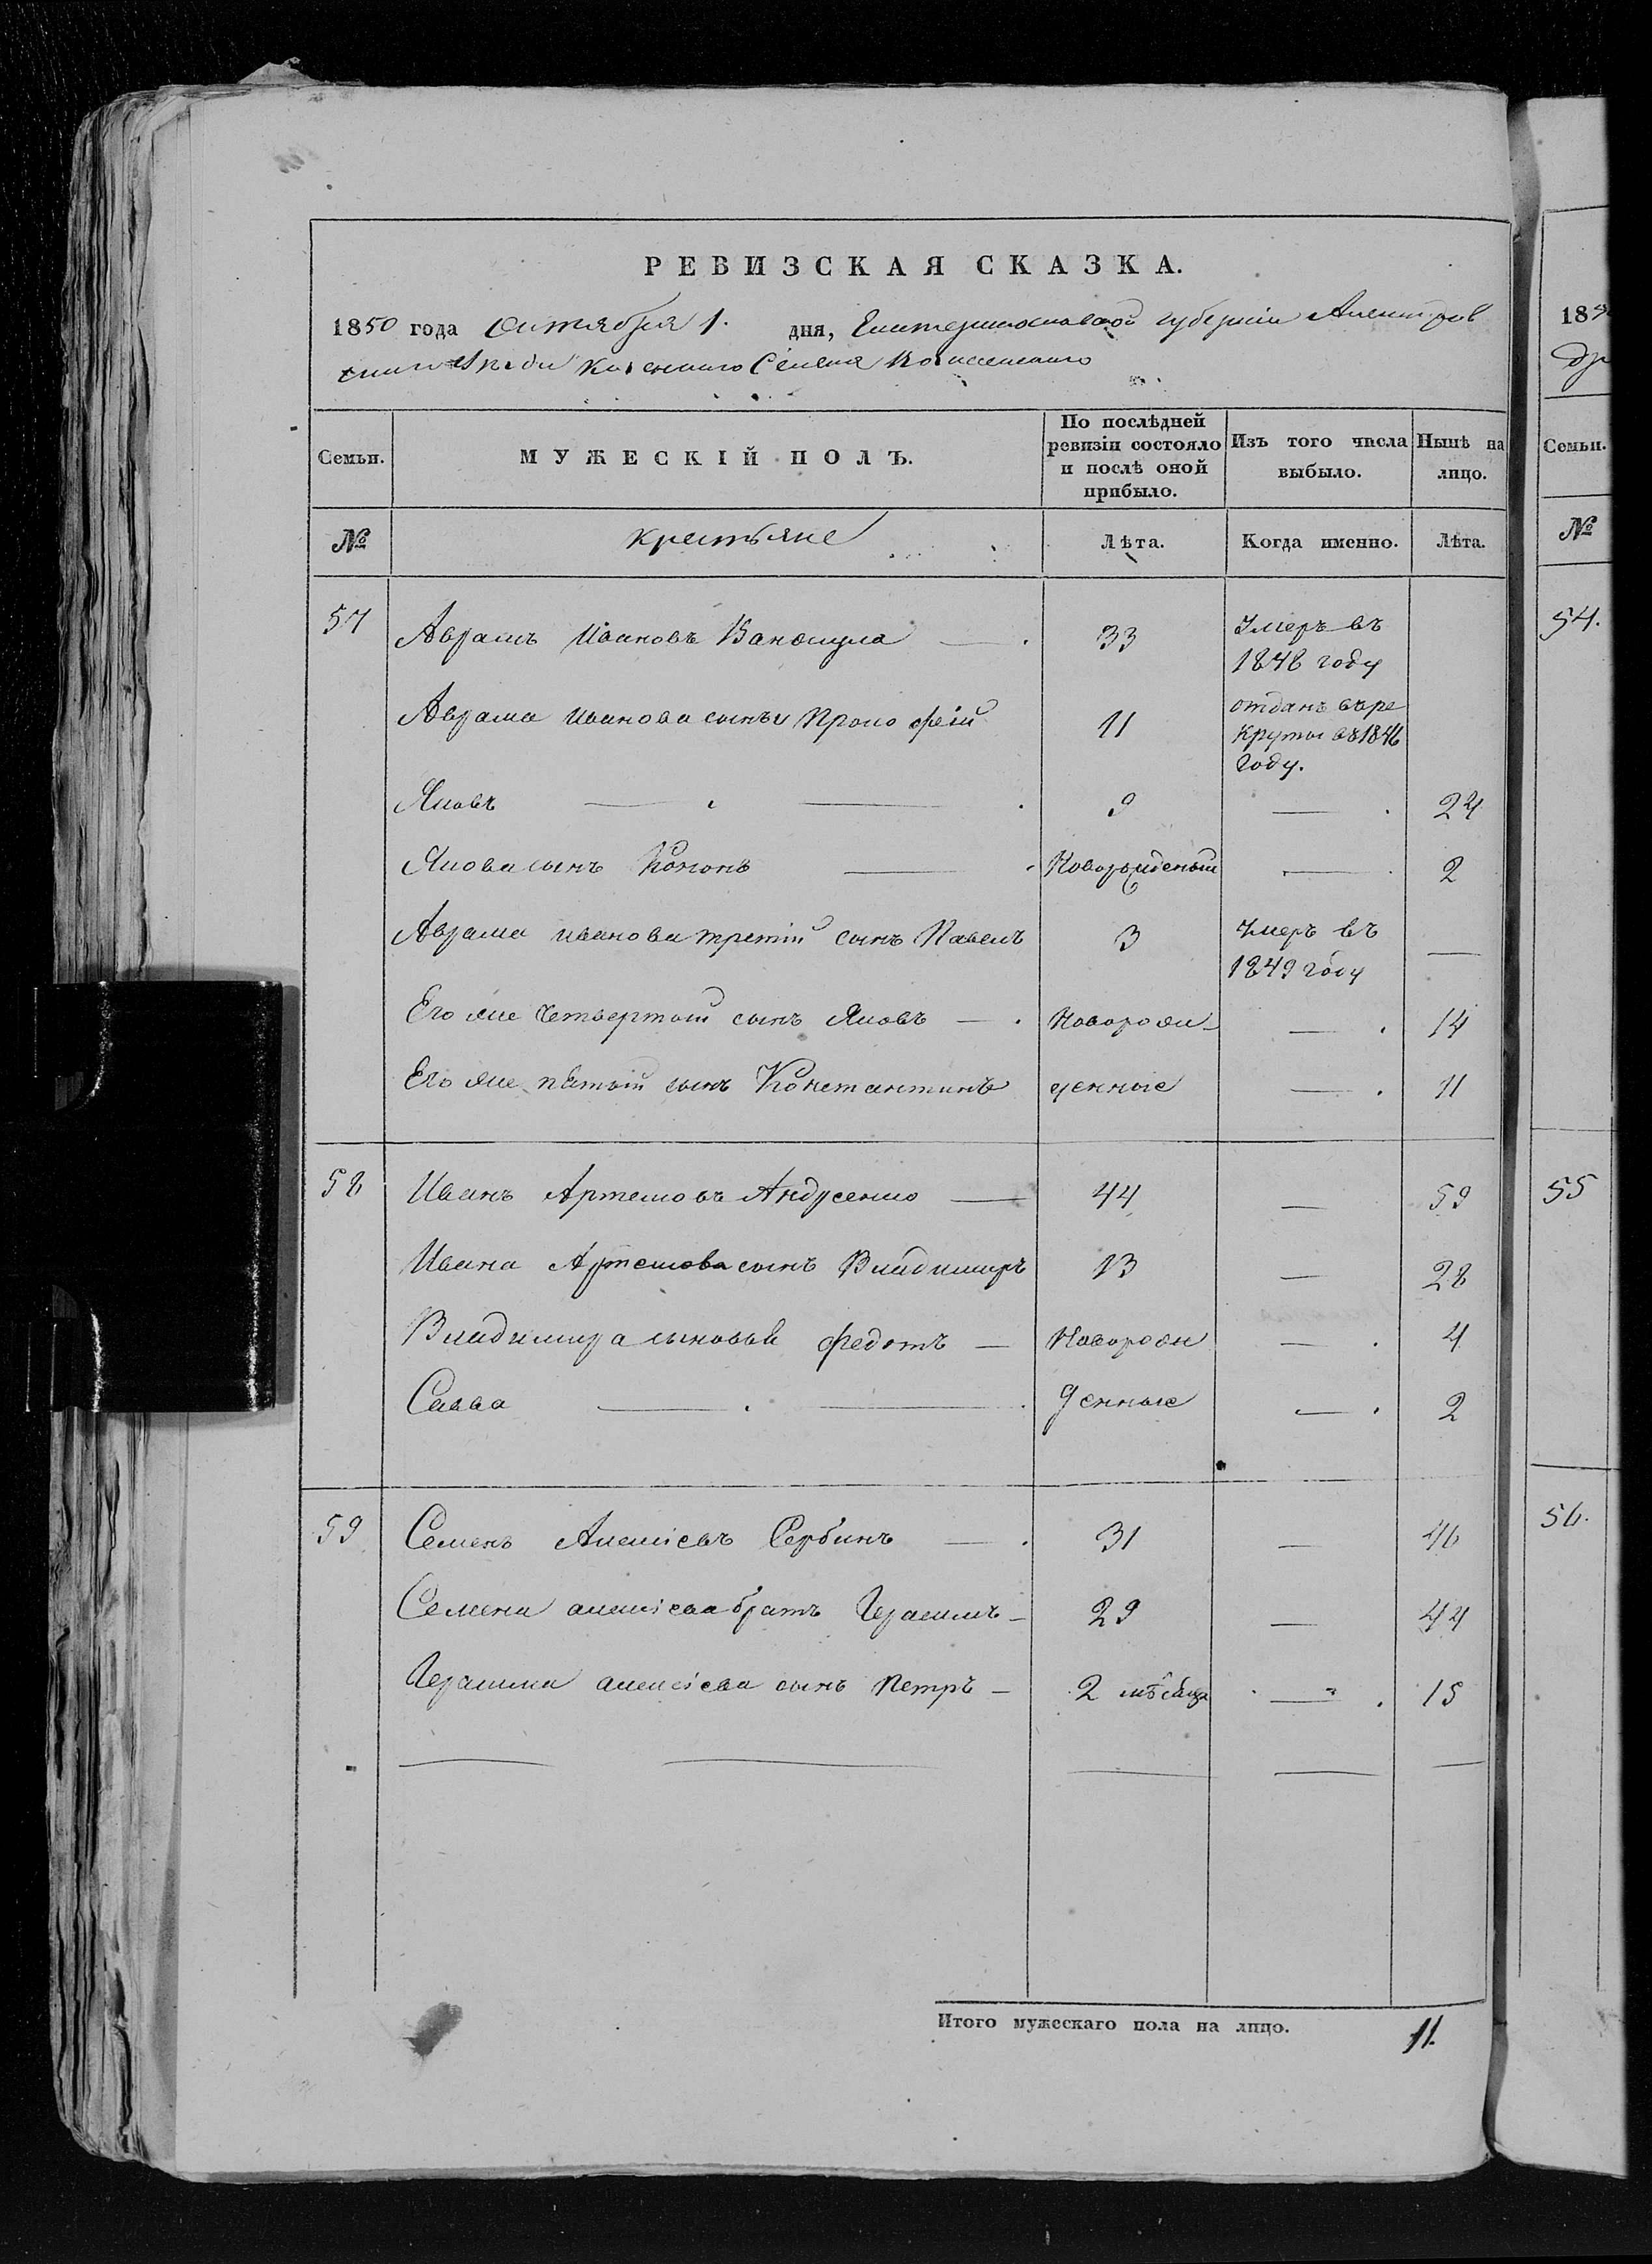 РЕВИЗСКАЯ СКАЗКА.
1850 года Октября 1. дня, Екатеринославской губерніи Александров
скаго уезда Казеннаго Селенія
Семьи. МУЖЕСКІЙ ПОЛЪ. По послѣдней ревизіи состояло и послѣ оной прибыло. Изъ того числа выбыло. Нынѣ на лицо.
№ крестьяне Лѣта. Когда именно. Лѣта.
57 Аврамъ Ивановъ 33 Умеръ въ
1848 году
Аврама Иванова сынъ Прокофій 11 отданъ въ ре
круты въ 1846
году.
Яковъ 9 — 24
Якова сынъ Кононъ Новорожденый — 2
Аврама Иванова третій сынъ Павелъ 3 Умеръ въ —
1849 году
Его же четвертый сынъ Яковъ — Новорож- — 14
Его же пятый сынъ Константинъ денные — 11
58 Иванъ Артемовъ Андусенко — 44 — 59
Ивана Артемова сынъ Владимиръ 13 — 28
Владимира сыновья Федотъ — Новорож — 4
Савва — денные — 2
59 Семенъ Алексіевъ Сербинъ — 31 — 46
Семена алексіева братъ Герасимъ — 29 — 44
Герасима алексіева сынъ Петръ — 2 мѣсяца — 15
Итого мужескаго пола на лицо. 11.
185
Семьи.
№
54.
55
56.